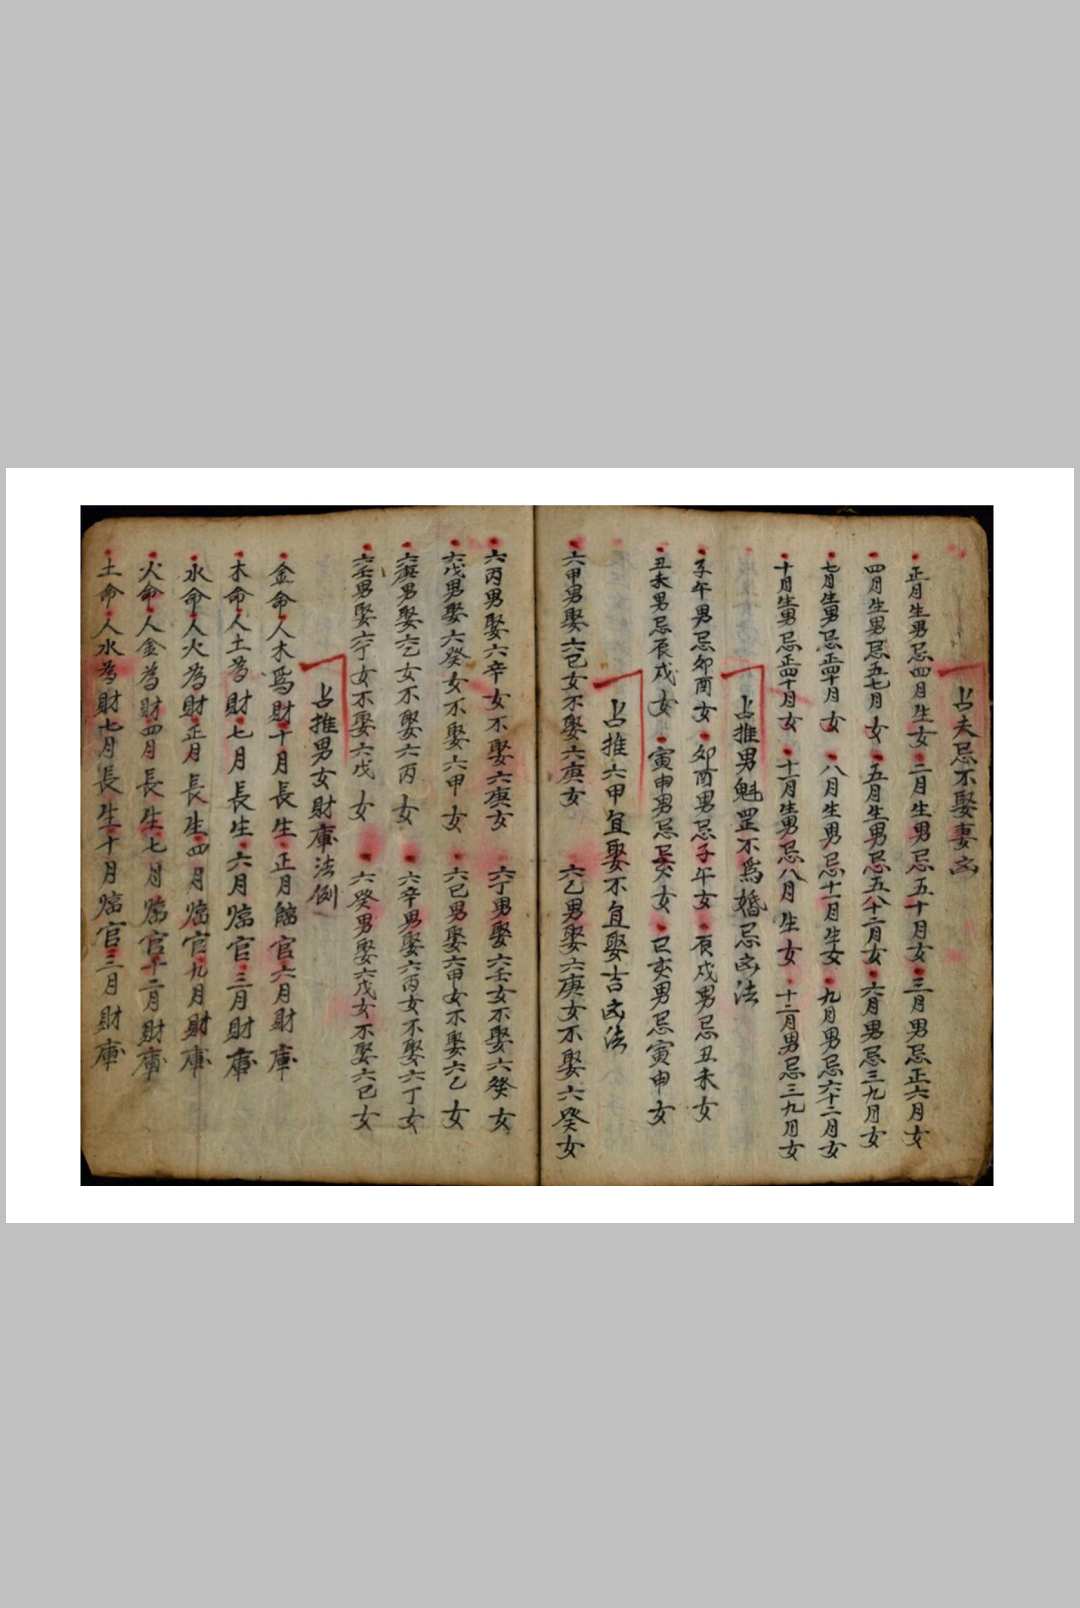 占夫忌不娶妻凶
正月生男忌四月生女二月生男忌五十月女三月男忌正六月女
四月生男忌五七月女五月生男忌五八十二月女六月男忌三九月女
七月生男忌正四十月女八月生男忌十一月生女九月男忌六十二月女
十月生男忌正四十月女十一月生男忌八月生女十二月男忌三九月女
占推男魁罡不爲婚忌凶法
子午男忌卯酉女卯酉男忌子午女辰戌男忌丑未女
丑未男忌辰戌女寅申男忌巳亥女巳亥男忌寅申女
占推六甲宜娶不宜娶吉凶法
六甲男娶六己女不娶六庚女六乙男娶六庚女不娶六癸女
六丙男娶六辛女不娶六庚女六丁男娶六壬女不娶六癸女
六戊男娶六癸女不娶六甲女六己男娶六甲女不娶六乙女
六庚男娶六乙女不娶六丙女六辛男娶六丙女不娶六丁女
六壬男娶六丁女不娶六戊女六癸男娶六戊女不娶六己女
占推男女財庫法例
金命人木爲財十月長生正月臨官六月財庫
木命人土為財七月長生六月臨官三月財庫
水命人火為財正月長生四月臨官九月財庫
火命人金為財四月長生七月臨官十二月財庫
土命人水為財七月長生十月臨官三月財庫